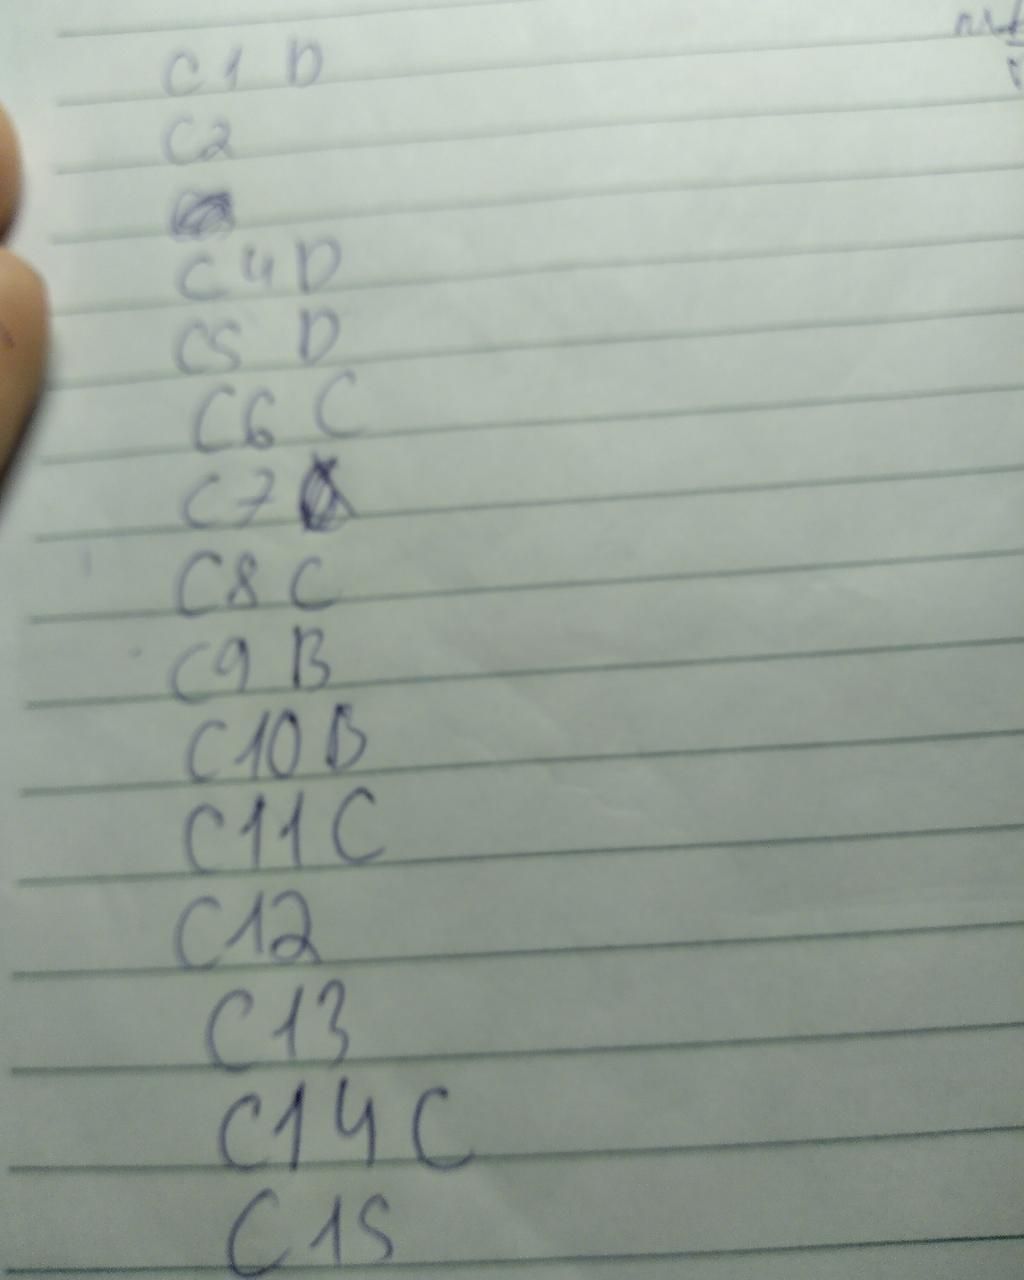 C1 D
C2
C4 D
C5 D
C6 C
C7
C8 C
C9 B
C10 B
C11 C
C12
C13
C14 C
C15